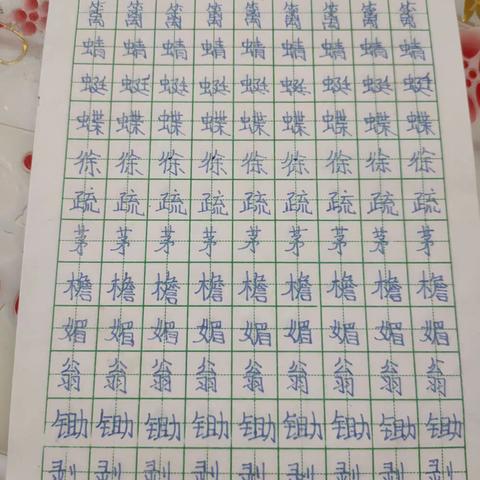 篱 篱 篱 篱 篱 篱 篱 篱 篱
蜻 蜻 蜻 蜻 蜻 蜻 蜻 蜻 蜻
蜓 蜓 蜓 蜓 蜓 蜓 蜓 蜓 蜓
蝶 蝶 蝶 蝶 蝶 蝶 蝶 蝶 蝶
徐 徐 徐 徐 徐 徐 徐 徐 徐
疏 疏 疏 疏 疏 疏 疏 疏 疏
茅 茅 茅 茅 茅 茅 茅 茅 茅
檐 檐 檐 檐 檐 檐 檐 檐 檐
媚 媚 媚 媚 媚 媚 媚 媚 媚
翁 翁 翁 翁 翁 翁 翁 翁 翁
锄 锄 锄 锄 锄 锄 锄 锄 锄
剥 剥 剥 剥 剥 剥 剥 剥 剥